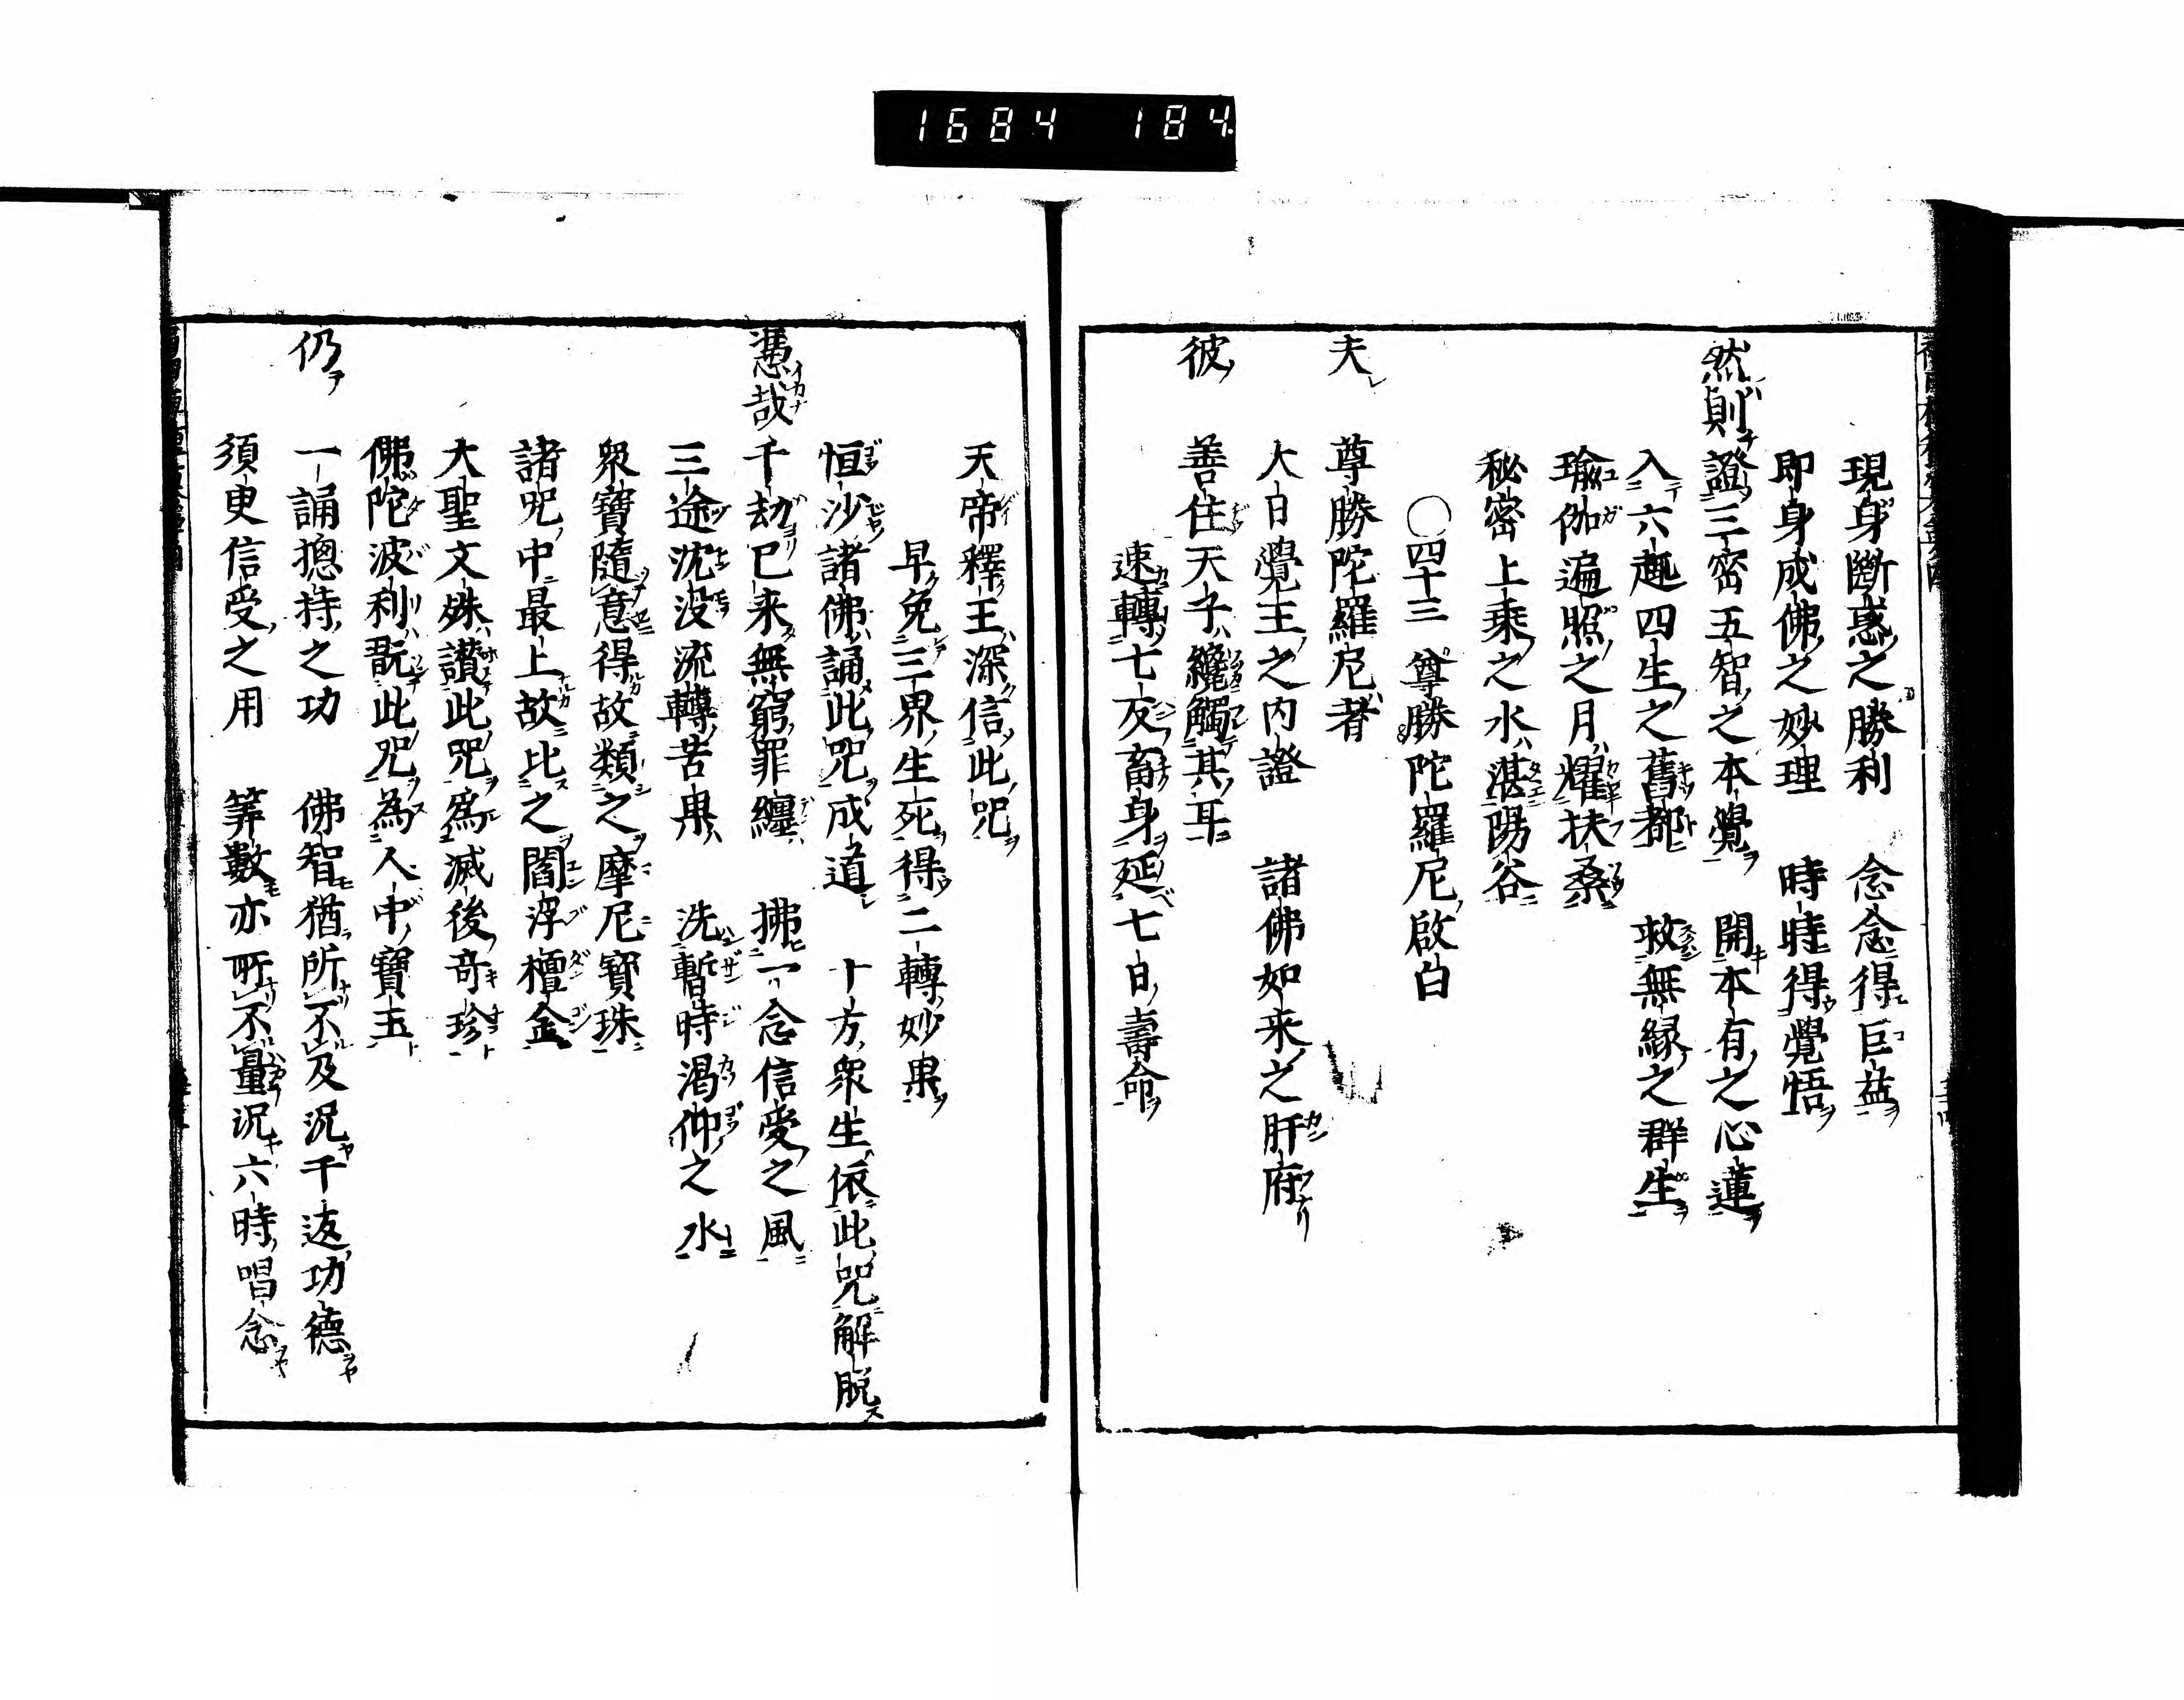 1684 184
現身斷惑之勝利 念念得巨益
即身成佛之妙理 時時得覺悟
然則證三密五智之本覺 開本有之心蓮
入六趣四生之舊都 救無縁之群生
瑜伽遍照之月耀扶桑
秘密上乘之水湛陽谷
○四十三 尊勝陀羅尼啟白
夫 尊勝陀羅尼者
大日覺王之内證 諸佛如来之肝府
彼 善住天子纔觸其耳
速轉七反畜身延七日壽命
天帝釋王深信此咒
早免三界生死得二轉妙果
恒沙諸佛誦此咒成道 十方衆生依此咒解脱
憑哉千劫已来無窮罪纏 拂一念信受之風
三途沈没流轉苦果 洗暫時渇仰之水
衆寶隨意得故類之摩尼寶珠
諸咒中最上故比之閻浮檀金
大聖文殊讃此咒為滅後奇珍
佛陀波利翫此咒為人中寶玉
仍 一誦摠持之功 佛智猶所不及况千返功德
須臾信受之用 筭數亦所不量况六時唱念